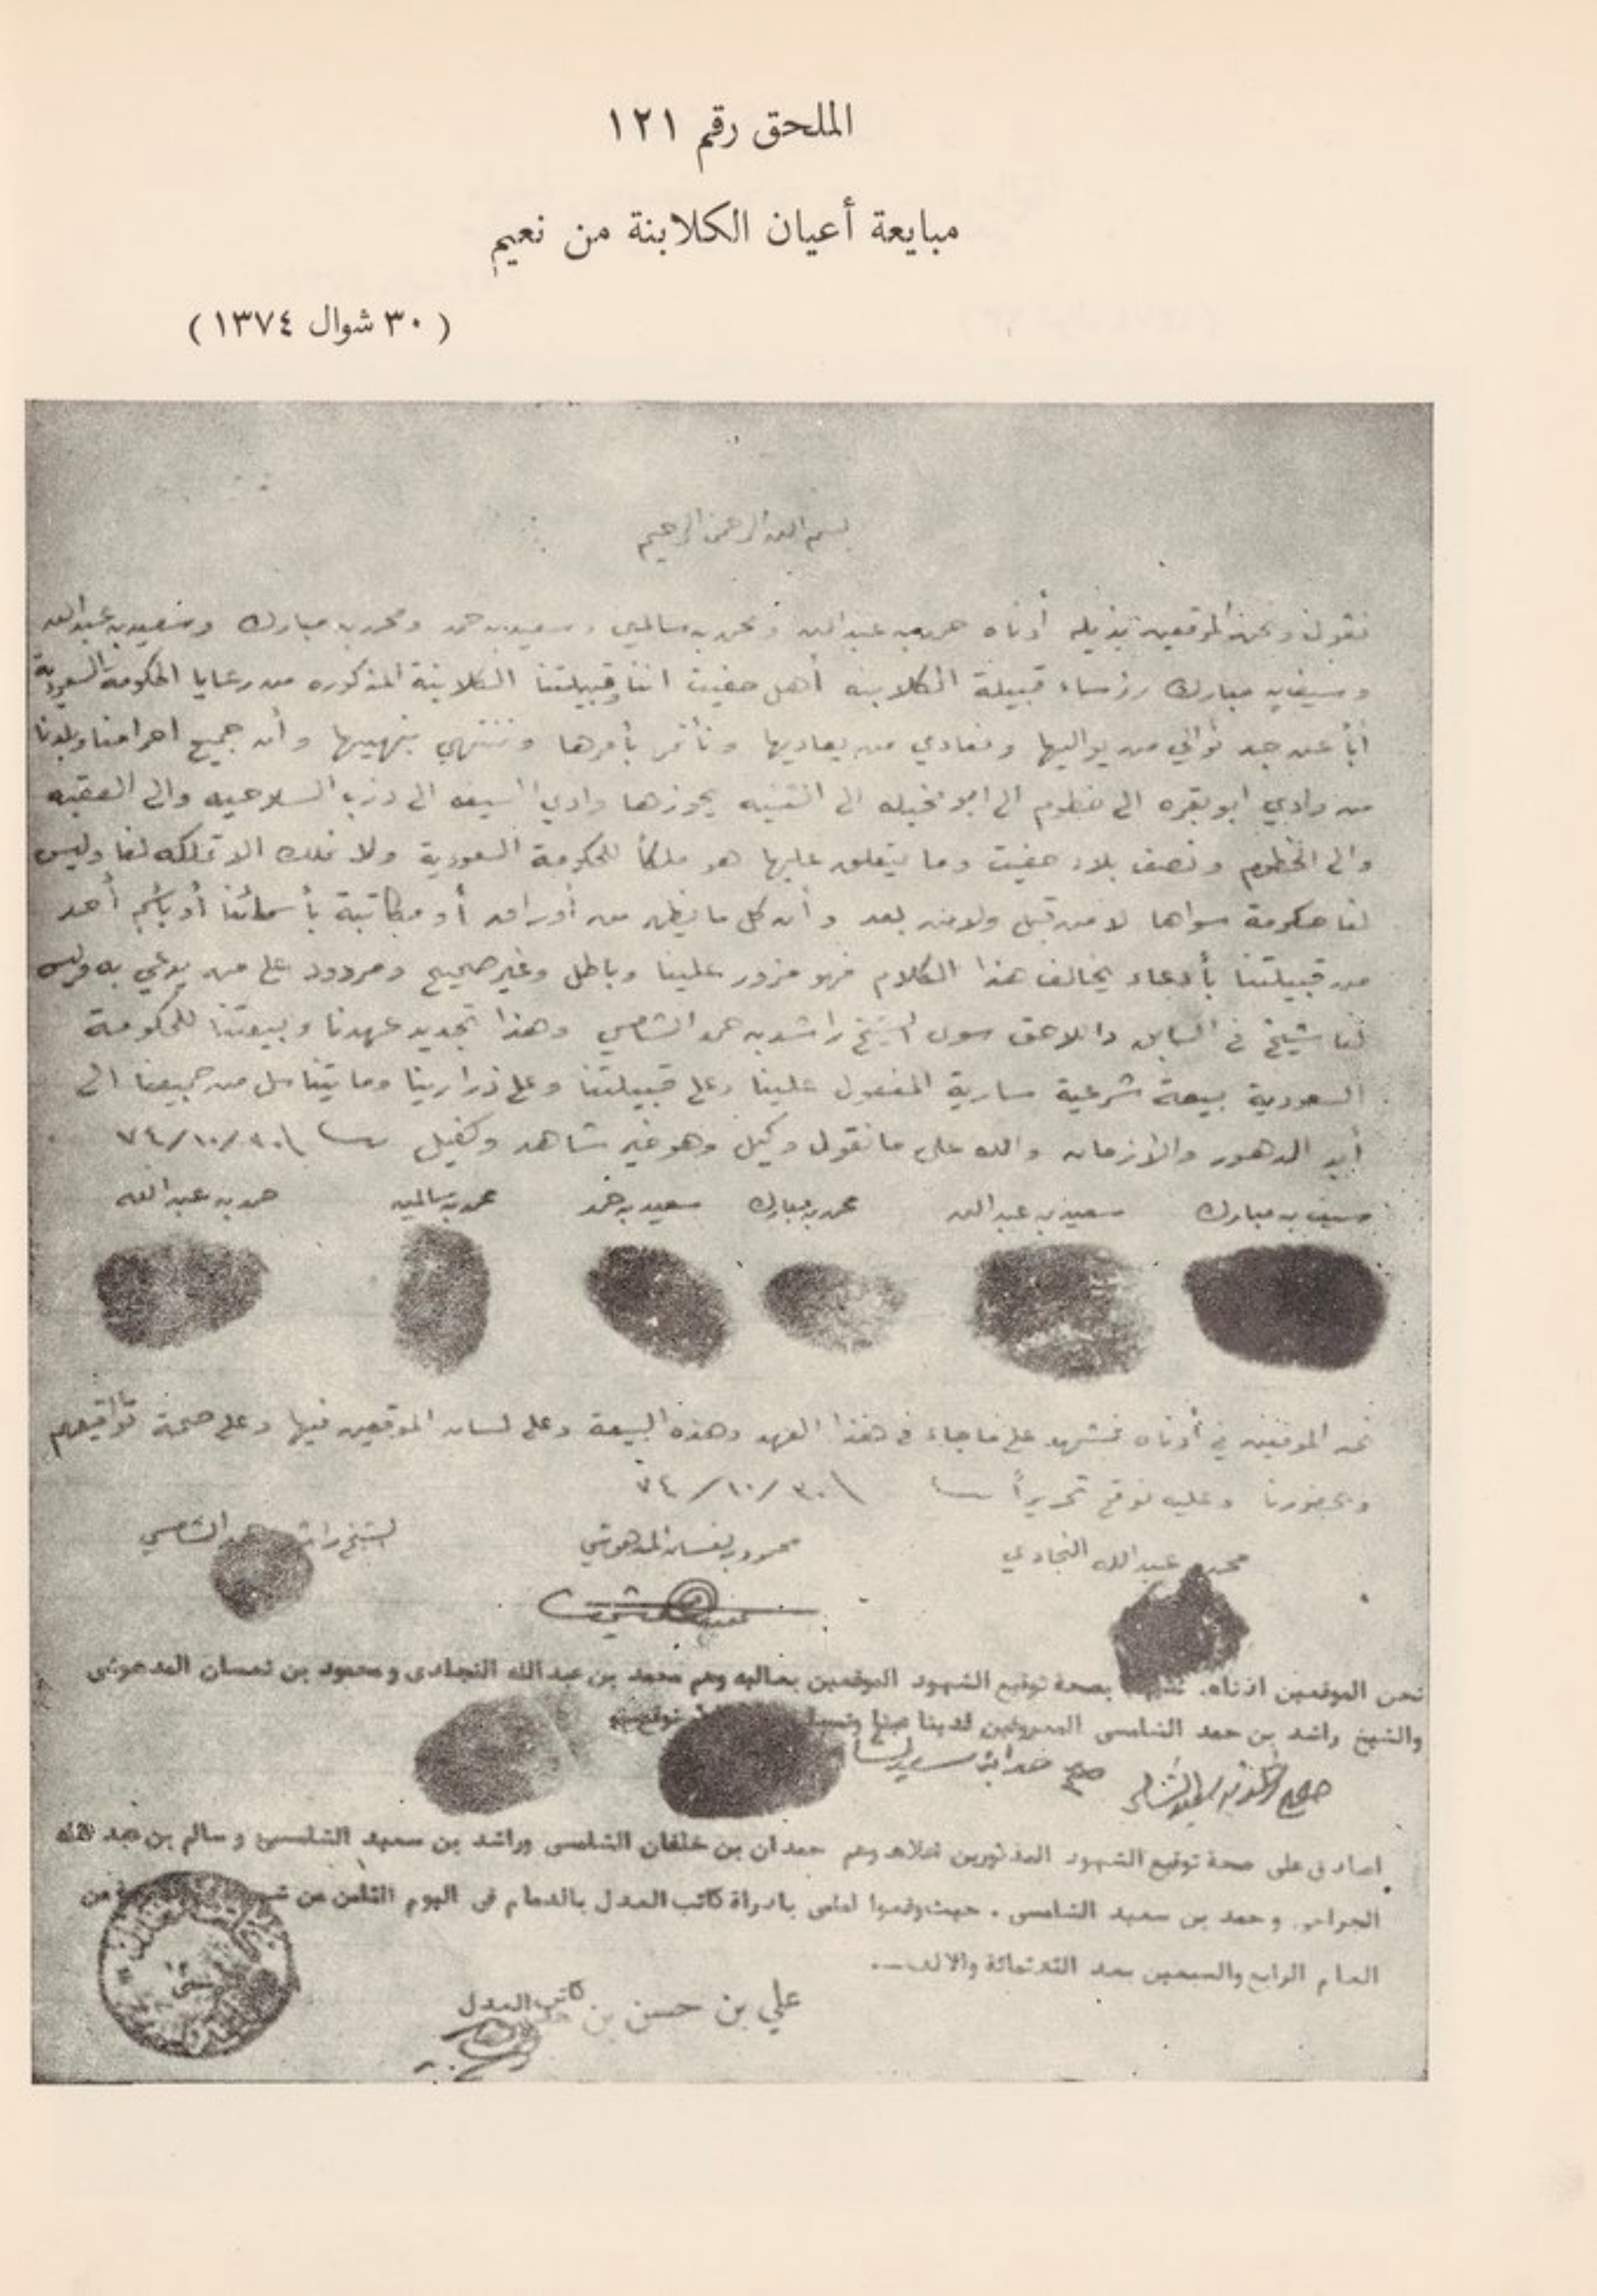 الملحق رقم ١٢١
مبايعة أعيان الكلابنة من نعيم
( ٣٠ شوال ١٣٧٤ )
بسم الله الرحمن الرحيم
نقول ونحن الموقعين بذيله أدناه حمد بن عبد الله ومحمد بن سالمين وسعيد بن حمد ومحمد بن مبارك وسعيد بن عبد الله
وسيف بن مبارك رؤساء قبيلة الكلابنه أهل حفيت اننا وقبيلتنا الكلابنة المذكوره من رعايا الحكومة السعودية
أباً عن جد نوالي من يواليها ونعادي من يعاديها ونأتمر بأمرها وننتهي بنهيها وأن جميع احرامنا وبلدنا
من وادي ابو بقره الى خطوم الى ابو نخيله الى الثنيه يحوزها وادي السيف الى درب السلاحيه والى العقبه
والى الخطوم ونصف بلاد حفيت وما يتعلق عليها هو ملكاً للحكومة السعودية ولا نملك الا تملكه لنا وليس
لنا حكومة سواها لا من قبل ولا من بعد وأن كل ما يظهر من أوراق أو مكاتبة بأسمائنا أو بأسم أحد
من قبيلتنا بأدعاء يخالف هذا الكلام فهو مزور علينا وباطل وغير صحيح ومردود على من يدعي به وليس
لنا شيخ في السابق واللاحق سوى الشيخ راشد بن حمد الشامسي وهذا تجديد عهدنا وبيعتنا للحكومة
السعودية بيعة شرعية سارية المفعول علينا وعلى قبيلتنا وعلى ذرارينا وما يتناسل من جميعنا الى
أبد الدهور والازمان والله على ما نقول وكيل وهو خير شاهد وكفيل ٣٠/١٠/٧٤
سيف بن مبارك سعيد بن عبد الله محمد بن مبارك سعيد بن حمد محمد بن سالمين حمد بن عبد الله
نحن الموقعين في أدناه نشهد على ما جاء في هذا العهد وهذه البيعة وعلى لسان الموقعين فيها وعلى صحة تواقيعهم
وبحضورنا وعليه نوقع تحريراً ٣٠/١٠/٧٤
محمد بن عبد الله النجادي محمود بن نعسان المدهوشي الشيخ راشد حمد الشامسي
نحن الموقعين ادناه، نشهد بصحة توقيع الشهود الموقعين بعاليه وهم محمد بن عبد الله النجادى ومحمود بن نعسان المدهوشى
والشيخ راشد بن حمد الشامسى المعروفين لدينا عينا
اصادق على صحة توقيع الشهود المذكورين اعلاه وهم حمدان بن خلفان الشامسى وراشد بن سعيد الشامسى وسالم بن عبد الله
وحمد بن سعيد الشامسى . حيث وقعوا امامى بادراة كاتب العدل بالدمام فى اليوم الثامن من من
العام الرابع والسبعين بعد الثلاثمائة والالف
كاتب العدل
علي بن حسن بن